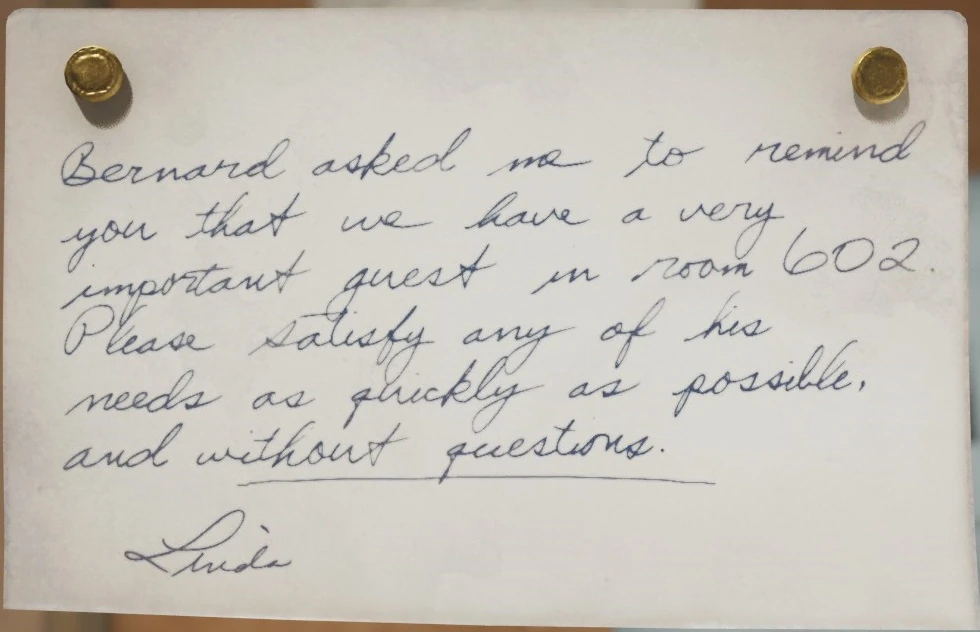 Bernard asked me to remind
you that we have a very
important guest in room 602.
Please satisfy any of his
needs as quickly as possible,
and without questions.
Linda